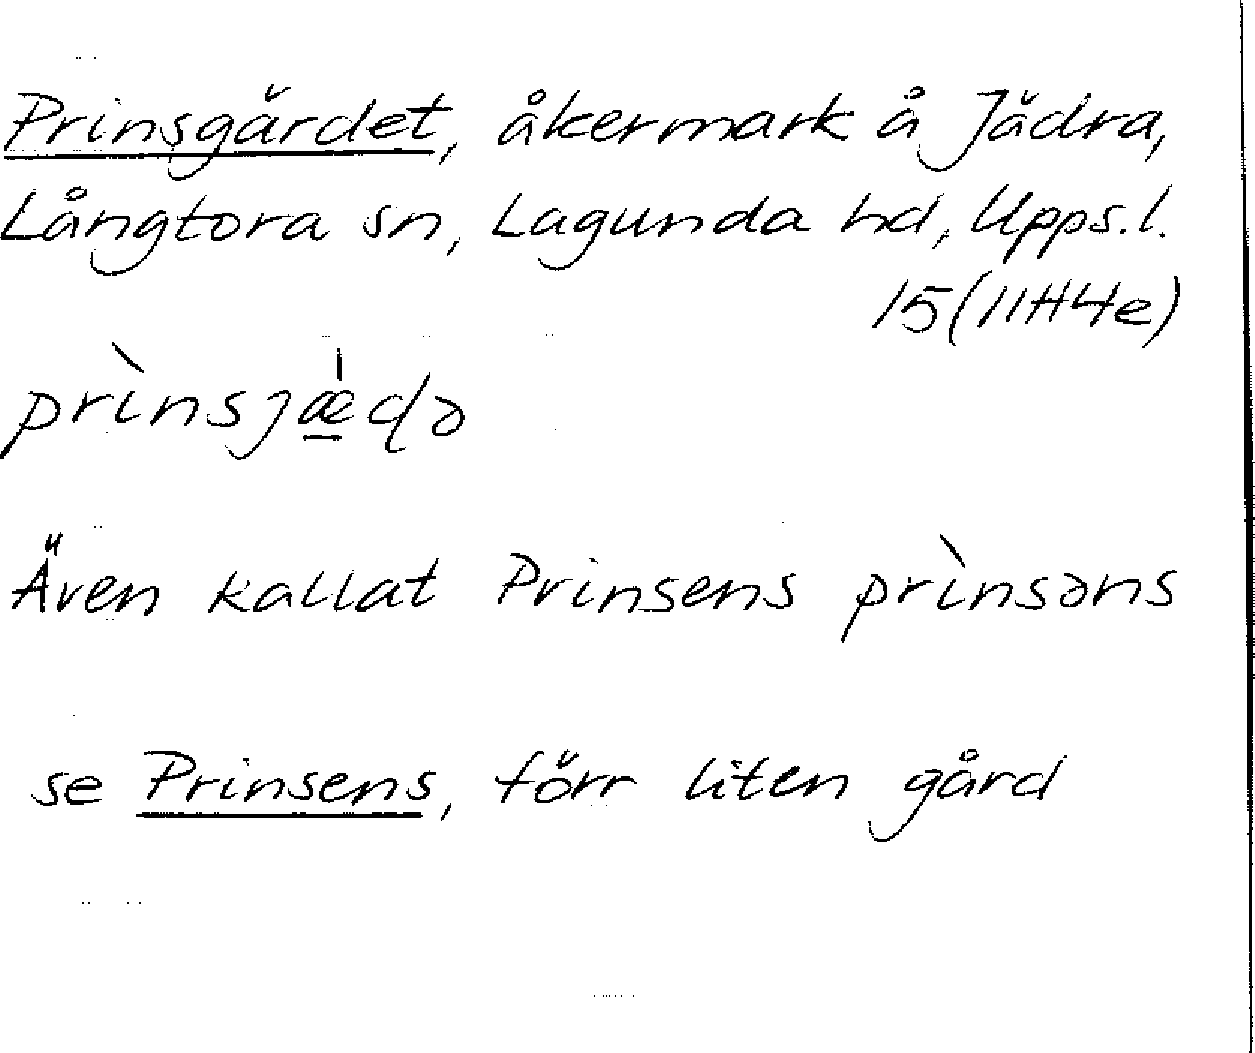 Prinsgärdet, åkermark å Jädra,
Långtora sn, Lagunda hd, Upps.l.
15(11H4e)
prìnsjæ̱̀ɖə
Även kallat Prinsens prìnsəns
se Prinsens, förr liten gård